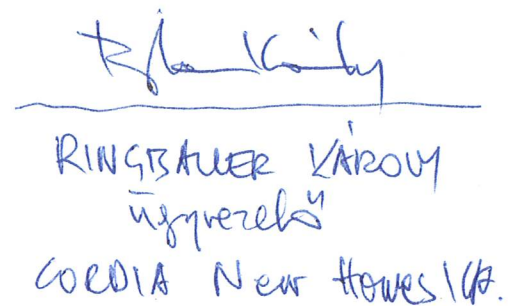 RINGBAUER KÁROLY
ügyvezető
CORDIA New Homes Kft.